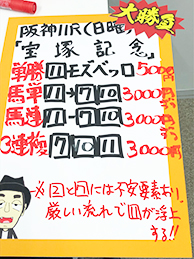 大勝負
阪神11R(日曜)
「宝塚記念」
単勝 11 モズベッロ 5000円
馬単 11→7 10 3000円
馬連 11-7 10 3000円
3連複 7 10 11 3000円
※2と には不安要素あり
厳しい流れで11が浮上
する!!